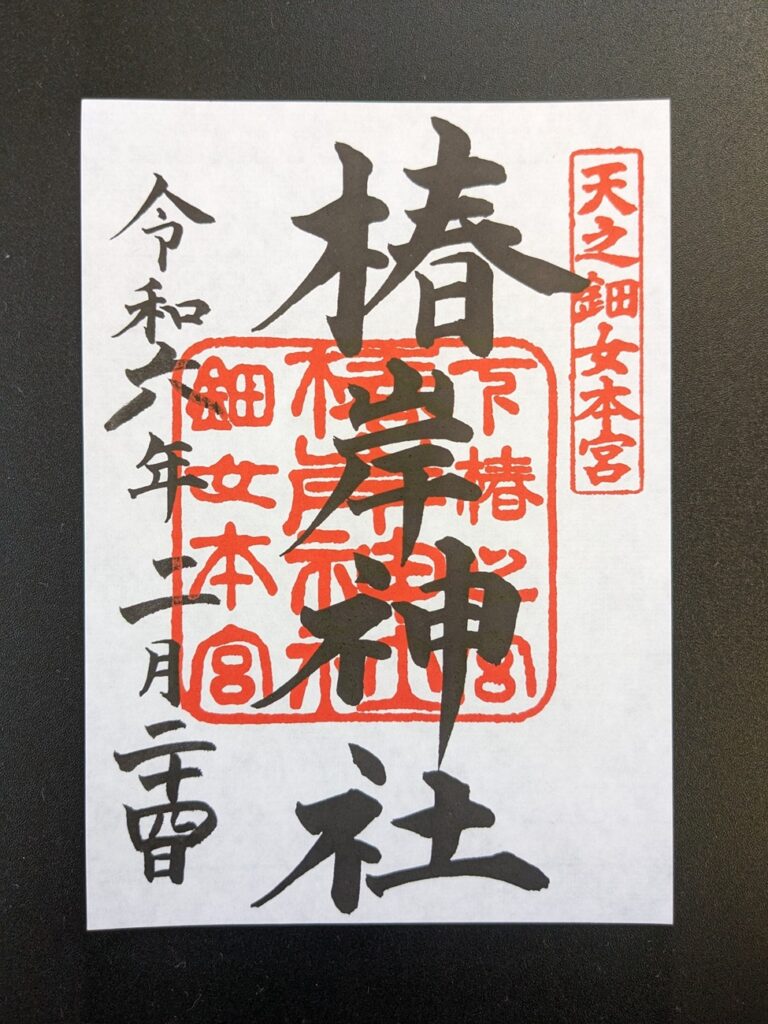 天之鈿女本宮
椿岸神社
下椿 宮
椿岸神社
鈿女本宮
令和六年二月二十四日